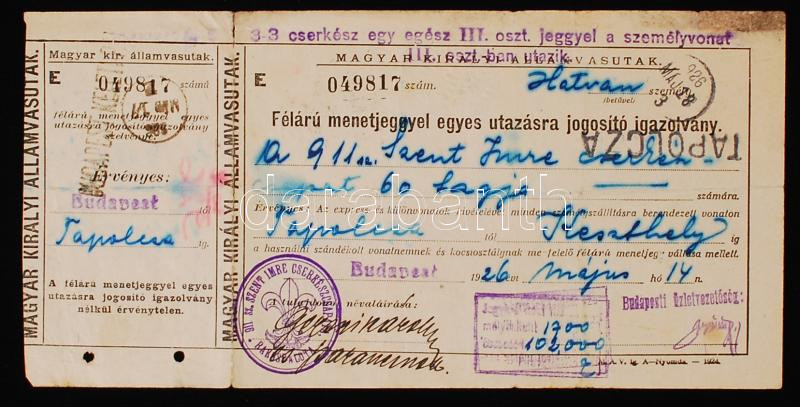 3-3 cserkész egy egész III. oszt. jeggyel a személyvonat
III. oszt.ban utazik.
MAGYAR KIRÁLYI ÁLLAMVASUTAK.
Magyar kir. államvasutak.
E 049817 számú
félárú menetjeggyel egyes
utazásra jogosító igazolvány
szelvénye.
Érvényes:
Budapest tól
Tapolcza ig.
A félárú menetjeggyel egyes
utazásra jogosító igazolvány
nélkül érvénytelen.
MAGYAR KIRÁLYI ÁLLAMVASUTAK.
MAGYAR KIRÁLYI ÁLLAMVASUTAK.
E 049817 szám.
Hatvan személy
(betűvel)
926 MÁJ 8
TAPOLCZA
Félárú menetjeggyel egyes utazásra jogosító igazolvány.
A 911 sz. Szent Imre cserkész
csapat 60 tagja
számára.
Érvényes: Az expressz és különvonatok kivételével minden személyszállításra berendezett vonaton
Tapolcza tól Keszthely ig
a használni szándékolt vonatnemnek és kocsiosztálynak megfelelő félárú menetjegy váltása mellett.
Budapest 1926 évi május hó 14 n.
A tulajdonos névaláírása:
911 SZ. SZENT IMRE CSERKÉSZCSAPAT
1700
102,000
Budapesti üzletvezetőség:
M. Á. V. Ig. A—Nyomda. — 1924.
darabanth